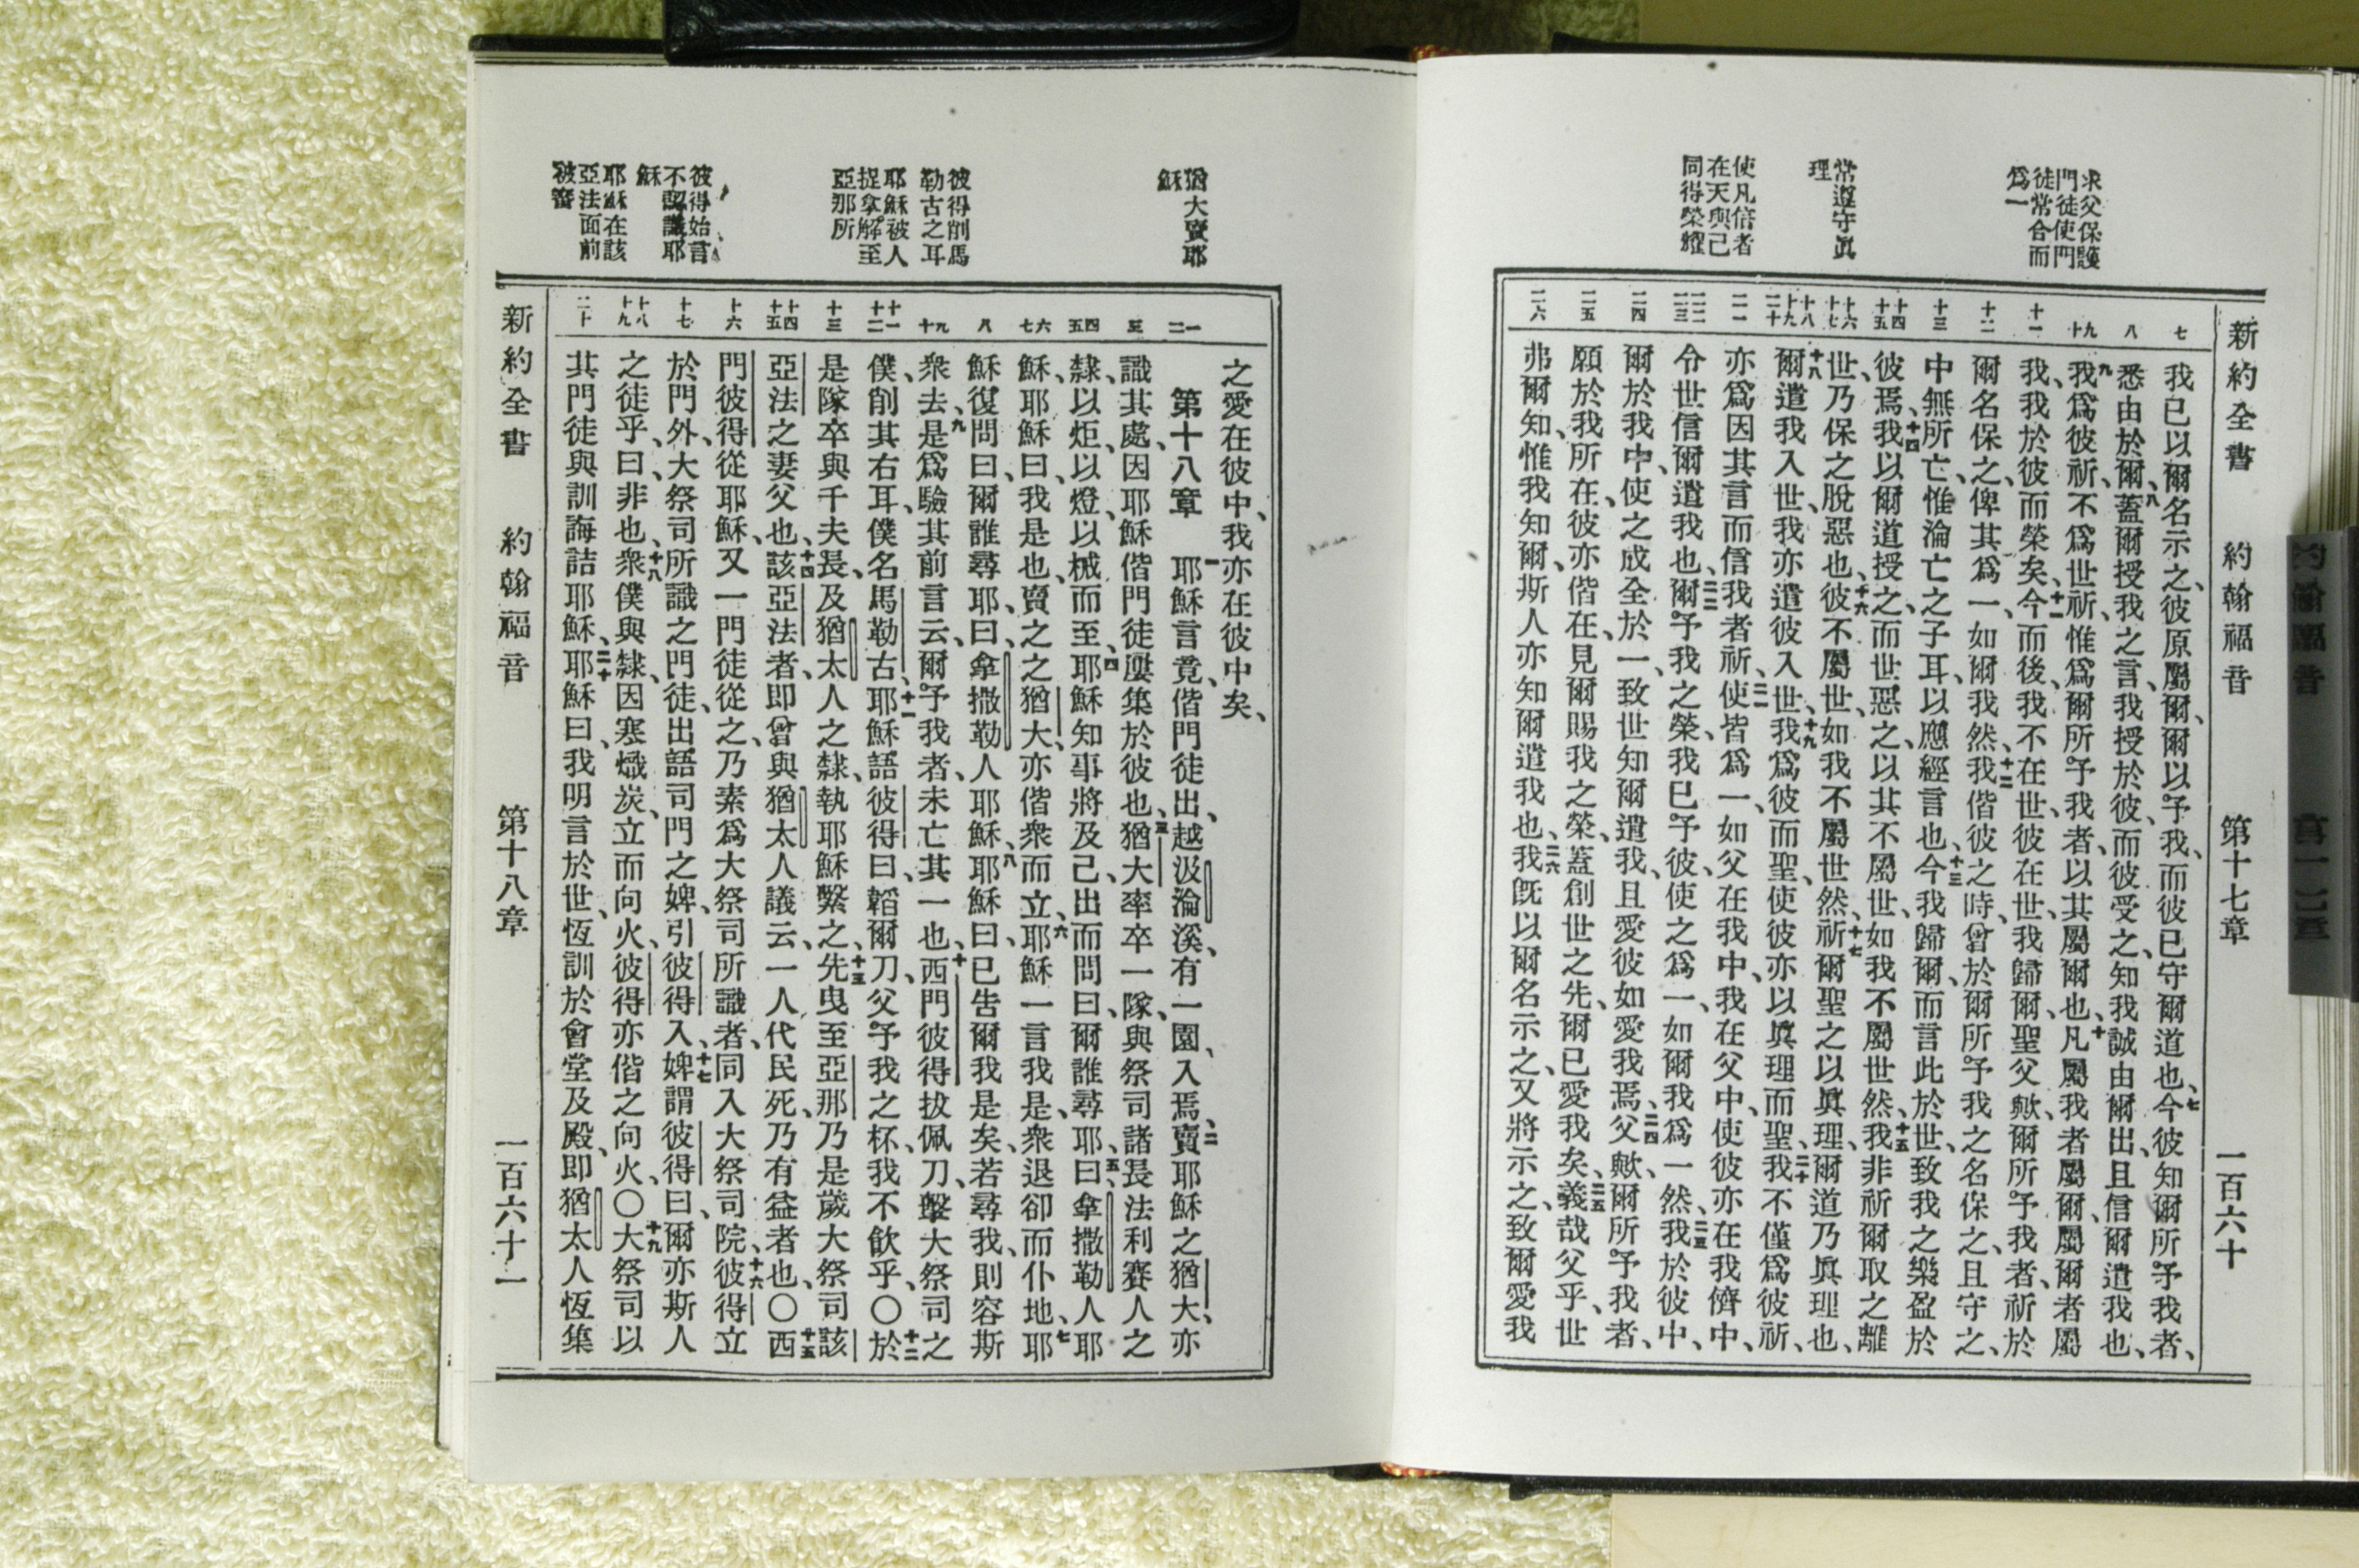 新約全書 約翰福音 第十七章 一百六十
求父保護
門徒使門
徒常合而
爲一
常遵守眞
理
使凡信者
在天與己
同得榮耀
七
八
九 十
十一
十二
十三
十四 十五
十六 十七
十八 十九 二十
二一
二二 二三
二四
二五
二六
我已以爾名示之、彼原屬爾、爾以予我、而彼已守爾道也、七今彼知爾所予我者、
悉由於爾、八蓋爾授我之言、我授於彼、而彼受之、知我誠由爾出、且信爾遣我也、
九我爲彼祈、不爲世祈、惟爲爾所予我者、以其屬爾也、十凡屬我者屬爾、屬爾者屬
我、我於彼而榮矣、十一今而後、我不在世、彼在世、我歸爾、聖父歟、爾所予我者、祈於
爾名保之、俾其爲一、如爾我然、十二我偕彼之時、曾於爾所予我之名保之、且守之、
中無所亡、惟淪亡之子耳、以應經言也、十三今我歸爾、而言此於世、致我之樂盈於
彼焉、十四我以爾道授之、而世惡之、以其不屬世、如我不屬世然、十五我非祈爾取之離
世、乃保之脫惡也、十六彼不屬世、如我不屬世然、十七祈爾聖之以眞理、爾道乃眞理也、
十八爾遣我入世、我亦遣彼入世、十九我爲彼而聖、使彼亦以眞理而聖、二十我不僅爲彼祈、
亦爲因其言而信我者祈、二一使皆爲一、如父在我中、我在父中、使彼亦在我儕中、
令世信爾遣我也、二二爾予我之榮、我已予彼、使之爲一、如爾我爲一然、二三我於彼中、
爾於我中、使之成全於一、致世知爾遣我、且愛彼如愛我焉、二四父歟、爾所予我者、
願於我所在、彼亦偕在、見爾賜我之榮、蓋創世之先、爾已愛我矣、二五義哉父乎、世
弗爾知、惟我知爾、斯人亦知爾遣我也、二六我旣以爾名示之、又將示之、致爾愛我
猶大賣耶
穌
彼得削馬
勒古之耳
耶穌被人
捉拿解至
亞那所
彼得始言
不認識耶
穌
耶穌在該
亞法面前
被審
一 二
三
四 五
六 七
八
九 十
十一 十二
十三
十四 十五
十六
十七
十八 十九
二十
之愛在彼中、我亦在彼中矣、
第十八章 一耶穌言竟、偕門徒出、越汲淪溪、有一園、入焉、二賣耶穌之猶大、亦
識其處、因耶穌偕門徒屢集於彼也、三猶大率卒一隊、與祭司諸長法利賽人之
隸、以炬、以燈、以械而至、四耶穌知事將及己、出而問曰、爾誰尋、耶、五曰、拿撒勒人耶
穌、耶穌曰、我是也、賣之之猶大、亦偕衆而立、六耶穌一言我是、衆退卻而仆地、七耶
穌復問曰、爾誰尋耶、曰、拿撒勒人耶穌、八耶穌曰、已告爾我是矣、若尋我、則容斯
衆去、九是爲驗其前言云、爾予我者、未亡其一也、十西門彼得拔佩刀、擊大祭司之
僕、削其右耳、僕名馬勒古、十一耶穌語彼得曰、韜爾刀、父予我之杯、我不飲乎、〇十二於
是隊卒與千夫長、及猶太人之隸、執耶穌繫之、十三先曳至亞那、乃是歲大祭司該
亞法之妻父也、十四該亞法者、即曾與猶太人議云、一人代民死、乃有益者也、〇十五西
門彼得從耶穌、又一門徒從之、乃素爲大祭司所識者、同入大祭司院、十六彼得立
於門外、大祭司所識之門徒、出語司門之婢、引彼得入、十七婢謂彼得曰、爾亦斯人
之徒乎、曰、非也、十八衆僕與隸、因寒熾炭、立而向火、彼得亦偕之向火、〇十九大祭司以
其門徒與訓誨詰耶穌、二十耶穌曰、我明言於世、恆訓於會堂及殿、即猶太人恆集
新約全書 約翰福音 第十八章 一百六十一